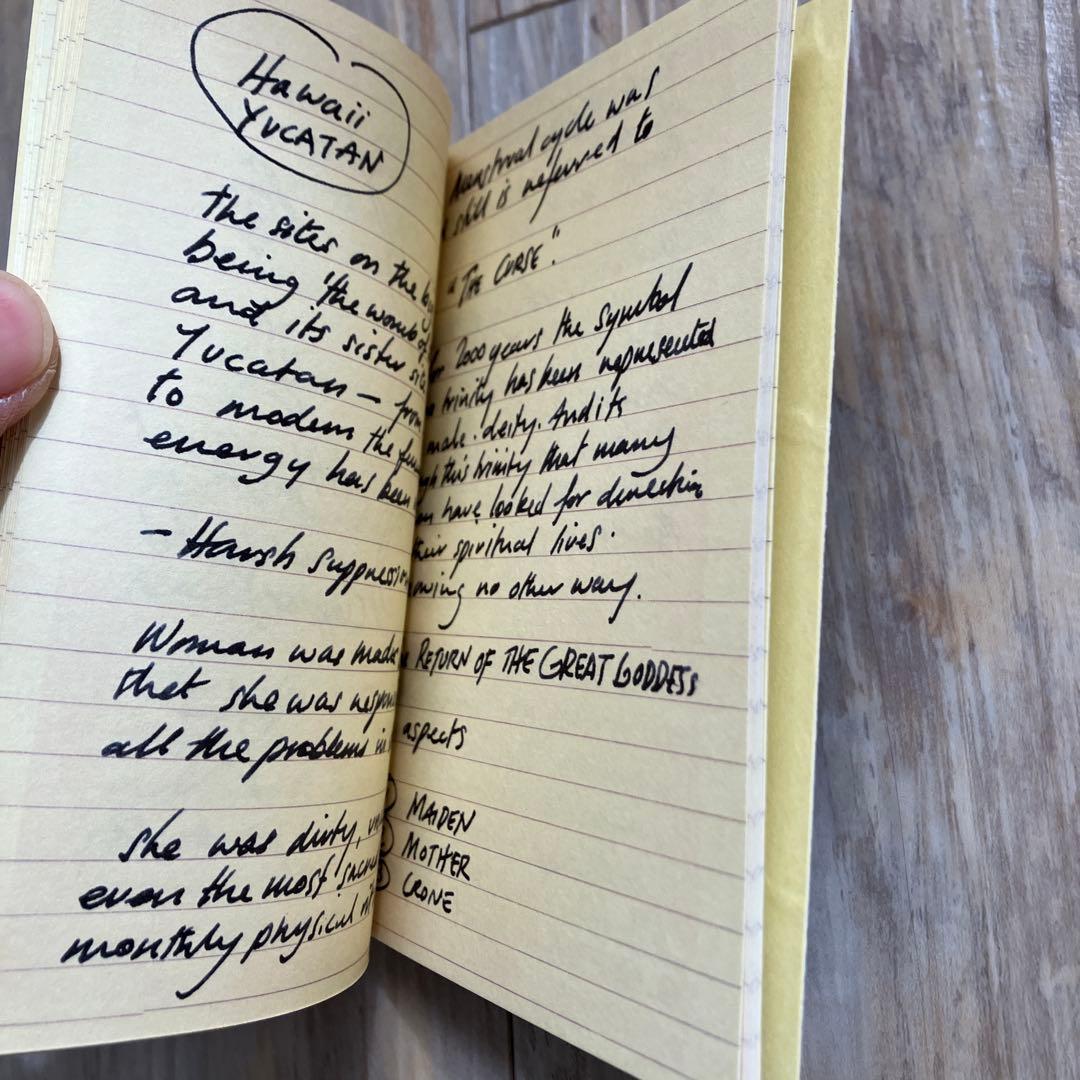 Hawaii
YUCATAN
the sites on the
being "the womb of
and its sister
Yucatan – from
to modern the
energy has been
– Harsh suppression
Woman was made
that she was
all the problems in
she was dirty,
even the most
monthly physical
menstrual cycle was
still is referred to
"THE CURSE".
2000 years the symbol
trinity has been represented
male. deity. And its
this trinity that many
have looked for direction
spiritual lives.
no other way.
RETURN OF THE GREAT GODDESS
aspects
MAIDEN
MOTHER
CRONE